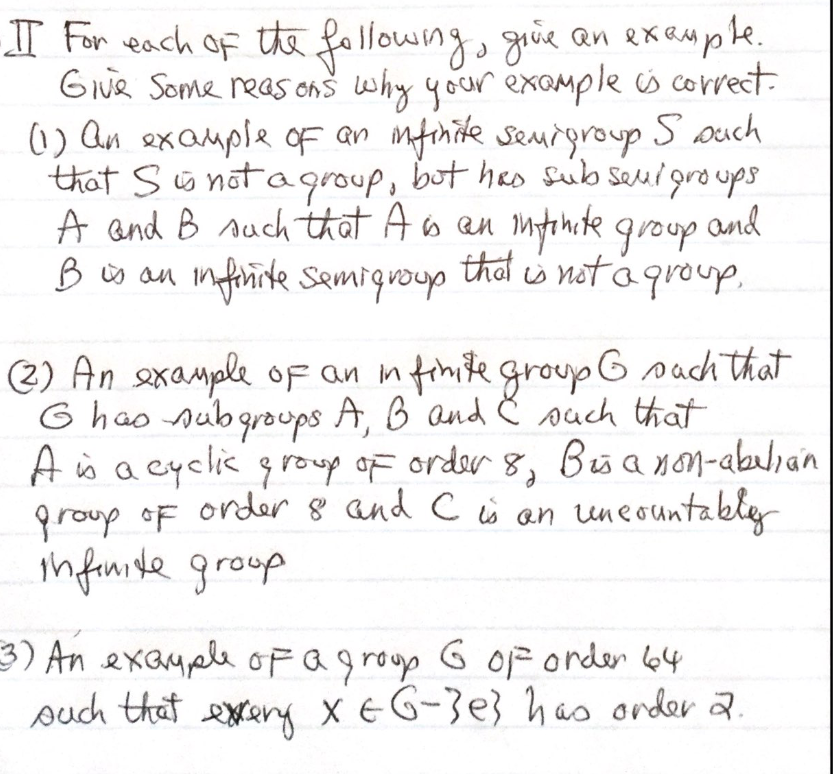 II For each of the following, give an example.
Give some reasons why your example is correct.
(1) An example of an infinite semigroup S such
that S is not a group, but has subsemigroups
A and B such that A is an infinite group and
B is an infinite semigroup that is not a group.
(2) An example of an infinite group G such that
G has subgroups A, B and C such that
A is a cyclic group of order 8, B is a non-abelian
group of order 8 and C is an uncountably
infinite group
3) An example of a group G of order 64
such that every x ∈ G-{e} has order 2.